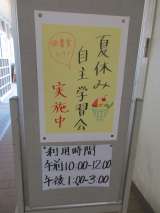 図書室
夏休み
自主学習会
実施中
*利用時間*
午前10:00-12:00
午後1:00-3:00